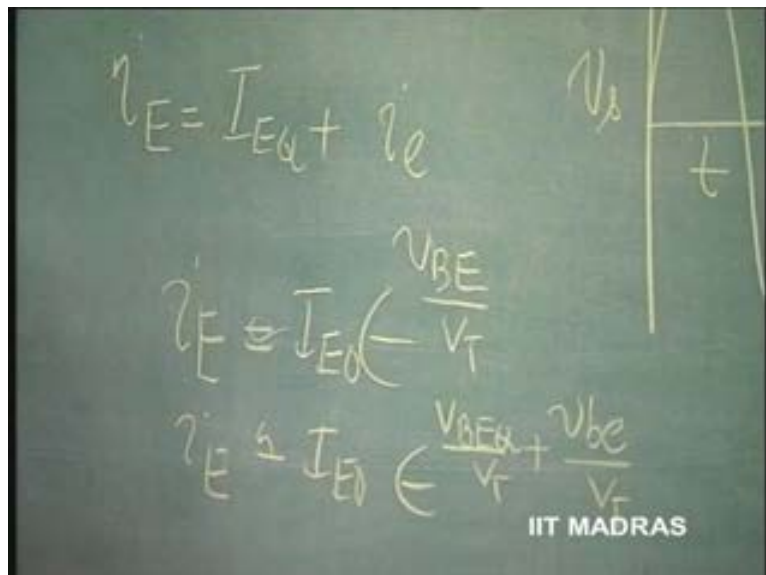 i_E = I_EQ + i_e
v_s
t
i_E = I_E0 ϵ^(v_BE/V_T)
i_E = I_E0 ϵ^(V_BEQ/V_T + v_be/V_T)
IIT MADRAS